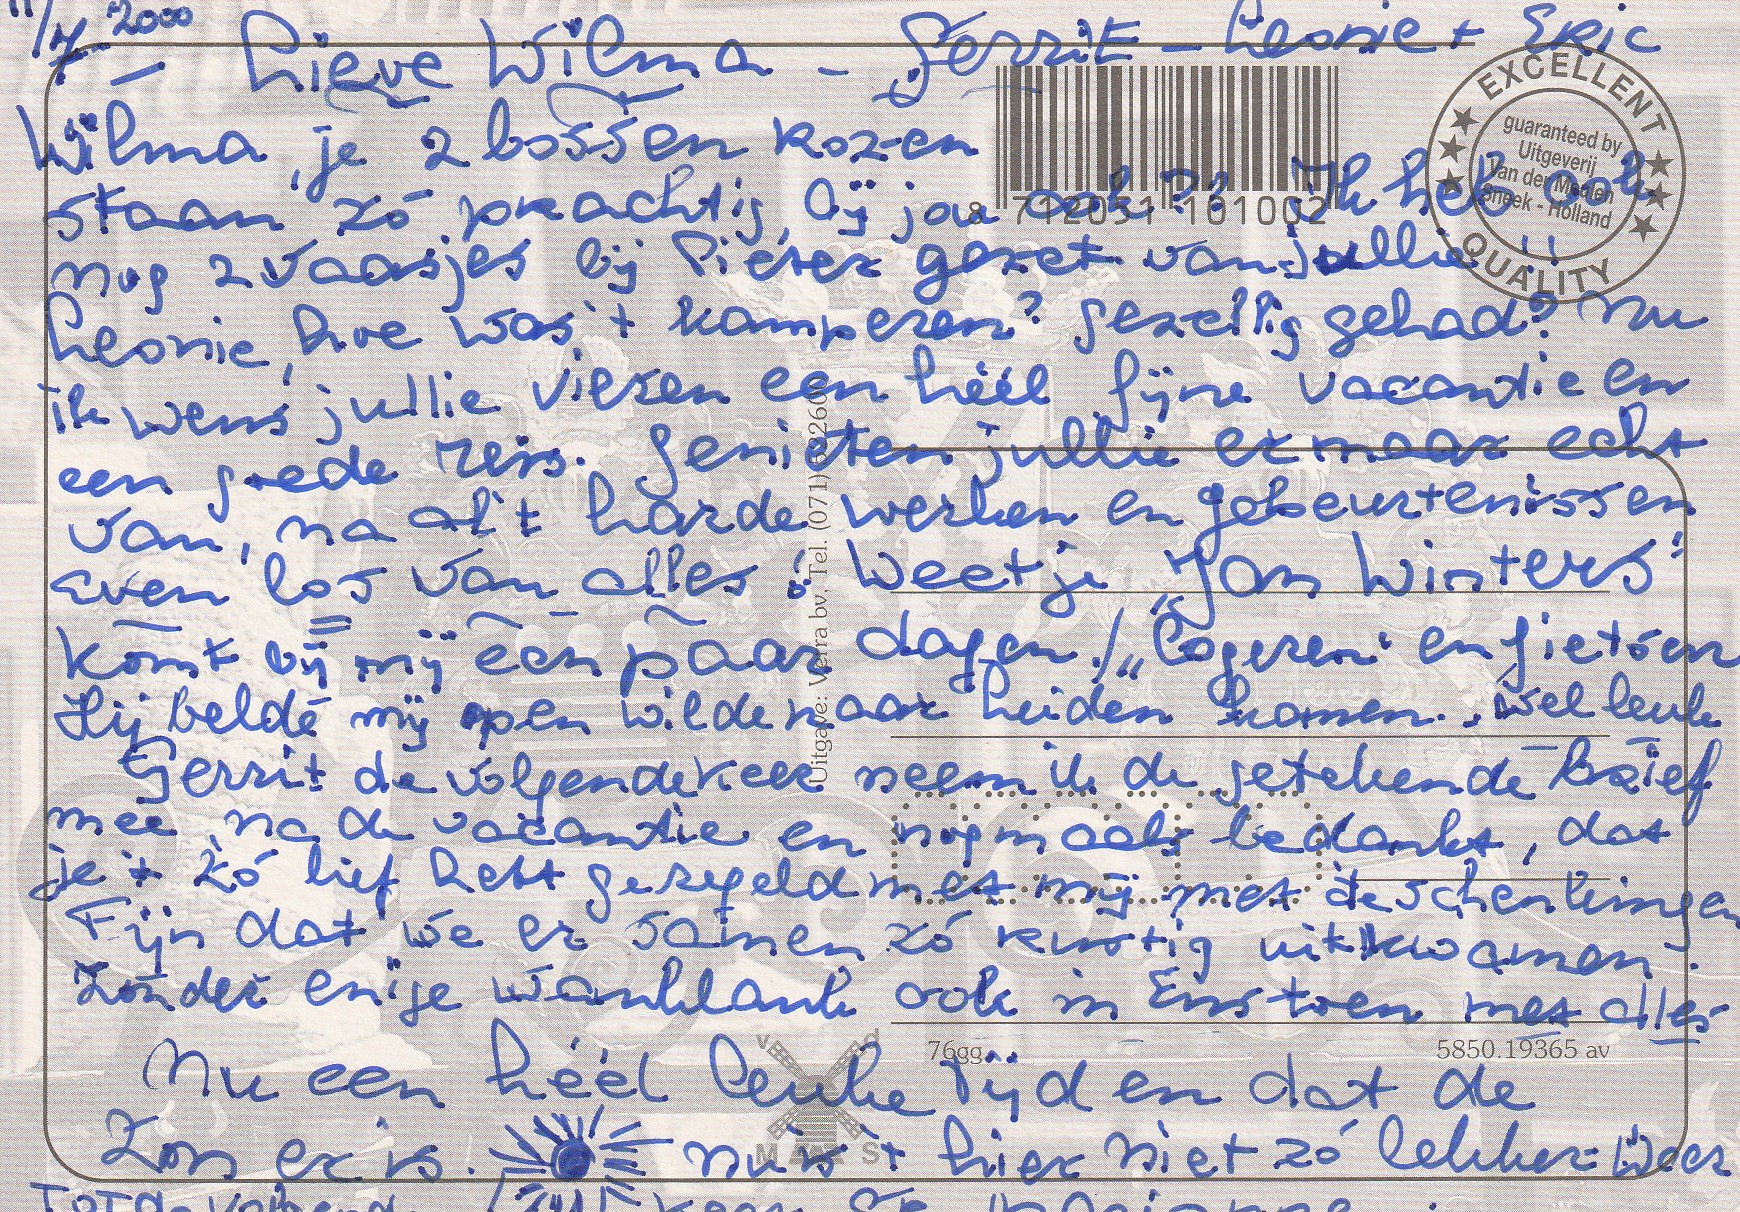 11/7 - 2000
Lieve Wilma - Gerrit - Leonie + Eric
Wilma, je 2 bossen rozen
staan zó prachtig, bij jou ook?! Ik heb ook
nog 2 vaasjes bij Pieter gezet van jullie!!
Leonie, hoe was 't kamperen? gezellig gehad? Nu
ik wens jullie vieren een héél fijne vacantie en
een goede reis. Genieten jullie er maar echt
van, na al 't harde werken en gebeurtenissen
even los van alles! Weet je "Jan Winters"
komt bij mij een paar dagen "logeren" en fietsen
Hij belde mij op en wilde naar Leiden komen.. wel leuk
Gerrit de volgende keer neem ik de getekende brief
mee, na de vacantie en nogmaals bedankt, dat
je 't zó lief hebt geregeld met mij met de schenkingen
Fijn dat we er samen zó rustig uitkwamen.
Zonder enige wanklank ook in Ens toen met alles
Nu een héél leuke tijd en dat de
Zon er is. nu is 't hier niet zó lekker weer
8 712051 101002
EXCELLENT QUALITY
guaranteed by
Uitgeverij
Van der Meulen
Sneek - Holland
Uitgave: Verra bv. Tel. (071)
76gg
5850.19365 av
v d
M S